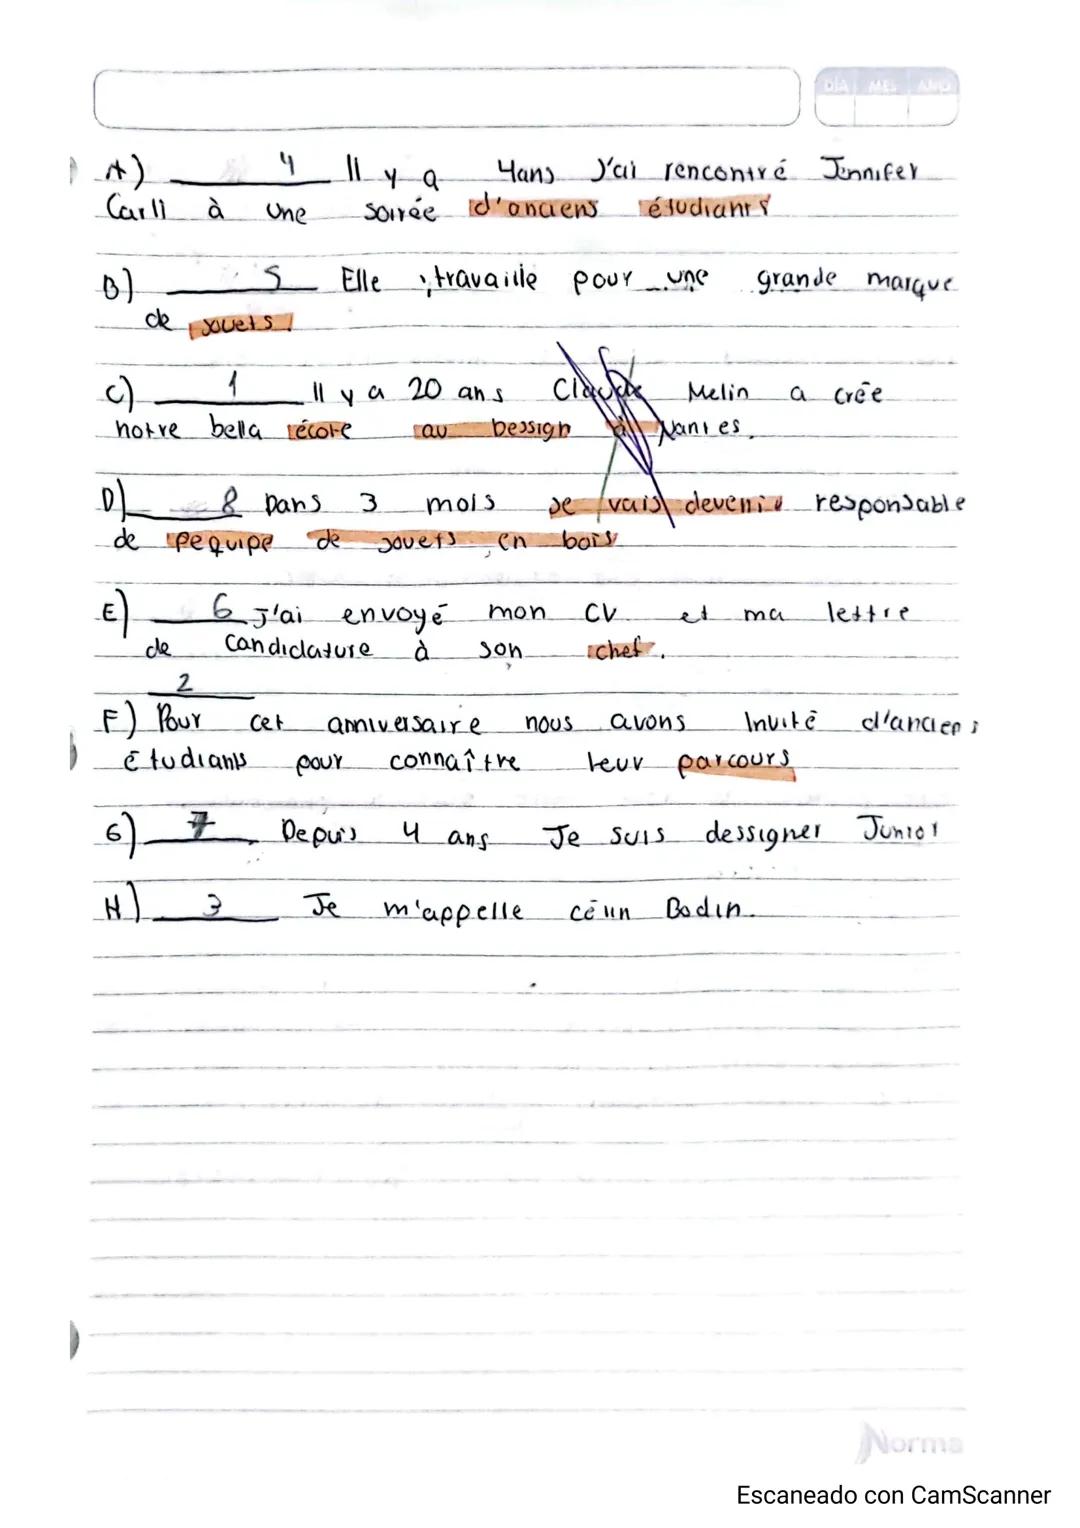 DÍA MES AÑO
A) 4 Il y a 4ans J'ai rencontré Jennifer
Carli à une soirée d'anciens étudiants
B) 5 Elle travaille pour une grande marque
de jouets.
C) 1 Il y a 20 ans Claude Melin a crée
notre bella école au Dessign à Nantes.
D) 8 Dans 3 mois Je vais devenir responsable
de l'equipe de jouets en bois
E) 6 J'ai envoyé mon CV et ma lettre
de candidature à son chef.
2
F) Pour cet anniversaire nous avons Invité d'anciens
étudiants pour connaître leur parcours
G) 7 Depuis 4 ans Je suis dessigner Junior
H) 3 Je m'appelle Bodin.
Norma
Escaneado con CamScanner